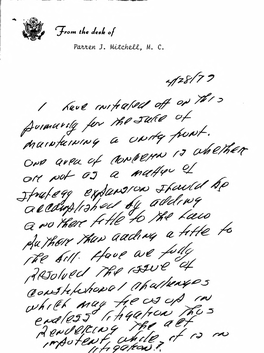 From the desk of
Parren J. Mitchell, M. C.
4/28/79
I have initialed off on this
primarily for the sake of
maintaining a unity front.
One area of concern is whether
or not as a matter of
strategy expansion should be
accomplished by adding
another title to the law
rather than adding a title to
the bill. Have we fully
resolved the issue of
constitutional challenges
which may tie us up in
endless litigation thus
rendering the act
impotent while it is in
litigation?